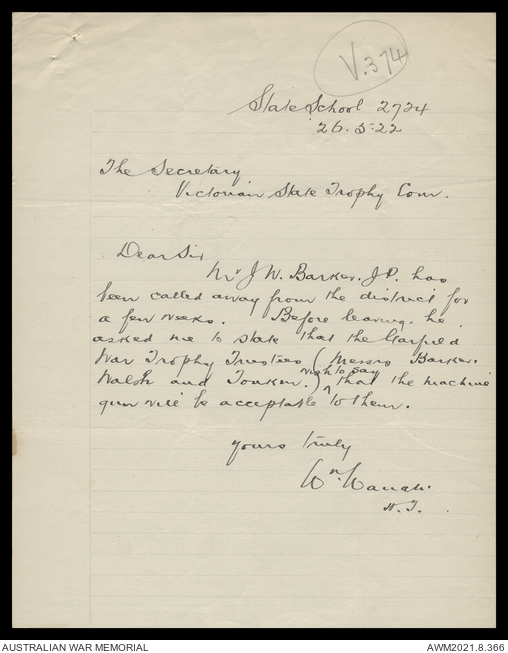 V.374
State School 2724
26.5.22
The Secretary
Victorian State Trophy Com.
Dear Sir
Mr J W. Barker. J P. has
been called away from the district for
a few weeks. Before leaving he
asked me to state that the Garfield
War Trophy Trustees (Messrs Barker.
Walsh and .) wish to say that the machine
gun will be acceptable to them.
yours truly
Wm
H.T.
AUSTRALIAN WAR MEMORIAL
AWM2021.8.366